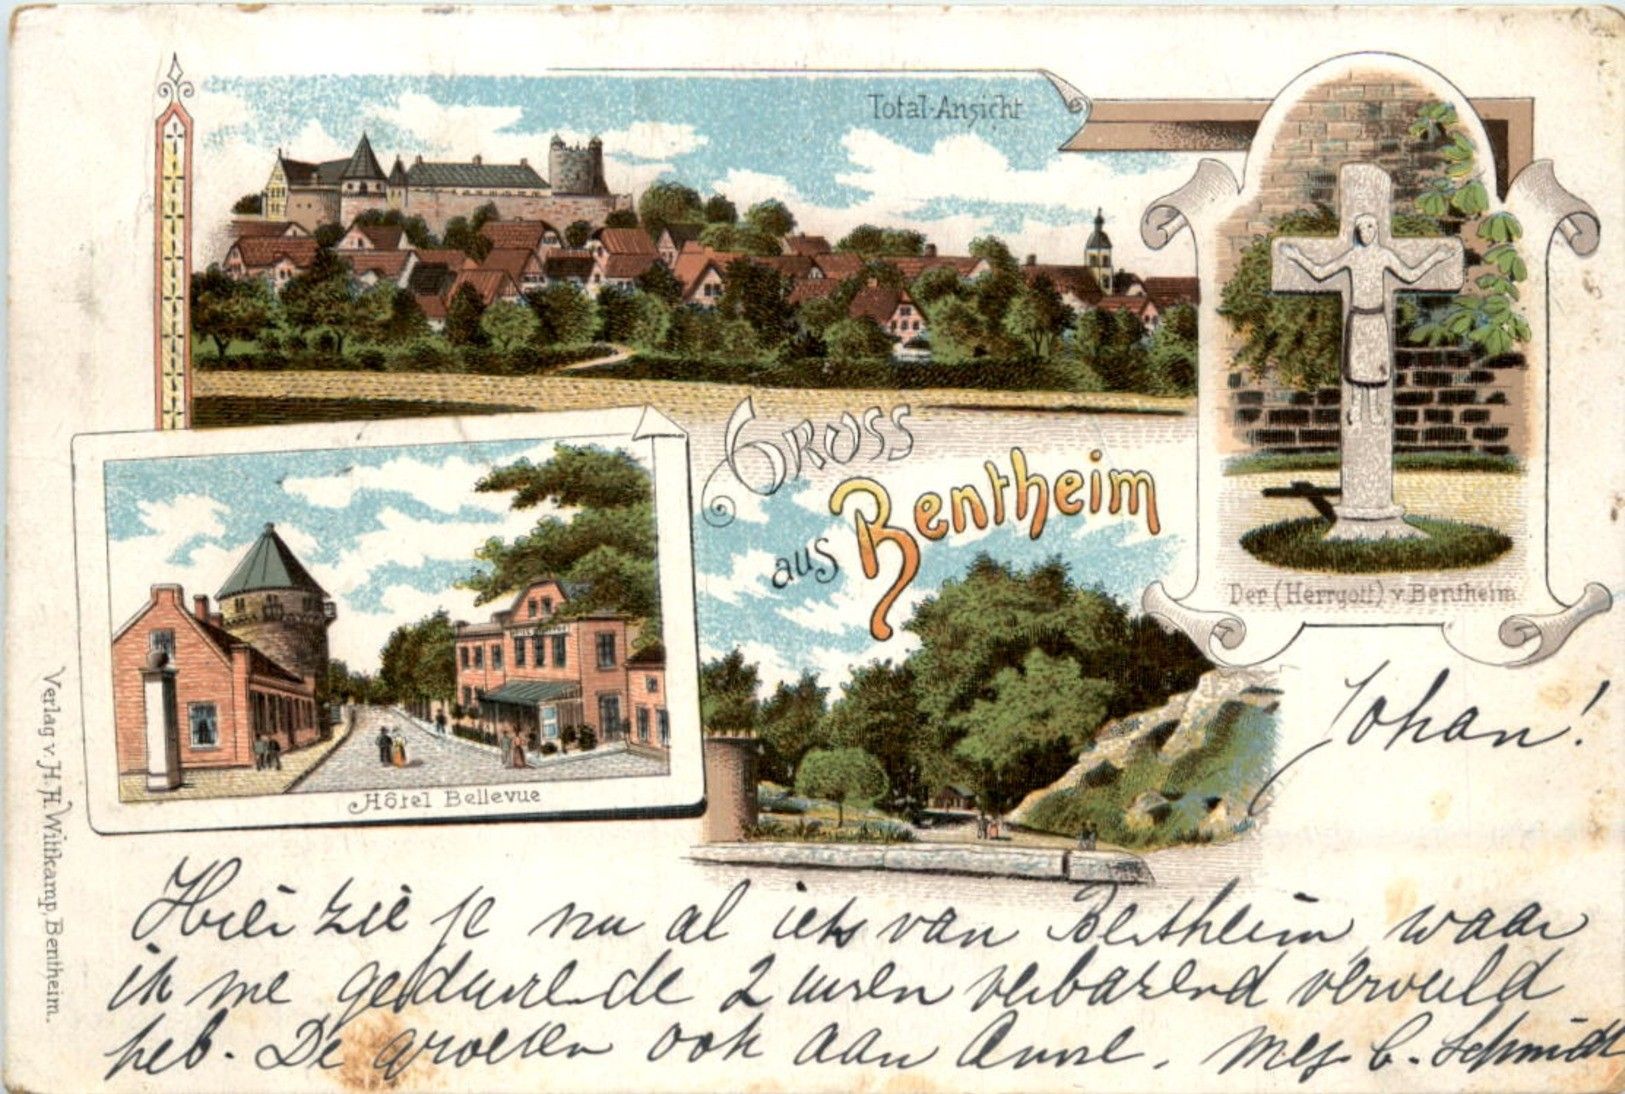 Total-Ansicht
Gruss
aus Bentheim
Der (Herrgott) v. Bentheim.
Hôtel Bellevue
Verlag v. H. H. Wittkamp, Bentheim.
Johan!
Hier zie je nu al iets van Bentheim, waar
ik me gedurende 2 uren verbazend verveeld
heb. De groeten ook aan Anne. C. Schmidt